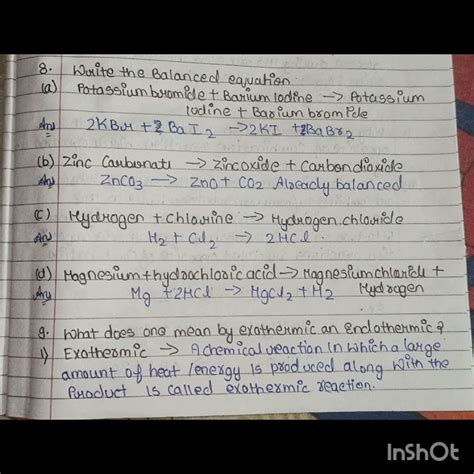 8. Write the Balanced equation.
(a) Potassium bromide + Barium Iodine → Potassium
Iodine + Barium bromide
Ans 2KBr + BaI2 → 2KI + BaBr2
(b) Zinc Carbonate → Zinc oxide + Carbon dioxide
Ans ZnCO3 → ZnO + CO2 Already balanced
(c) Hydrogen + Chlorine → Hydrogen chloride
Ans H2 + Cl2 → 2HCl
(d) Magnesium + hydrochloric acid → Magnesium chloride +
Hydrogen
Ans Mg + 2HCl → MgCl2 + H2
9. What does one mean by exothermic an Endothermic?
1) Exothermic → A chemical reaction In which a large
amount of heat /energy Is produced along with the
Product Is called exothermic reaction.
InShOt